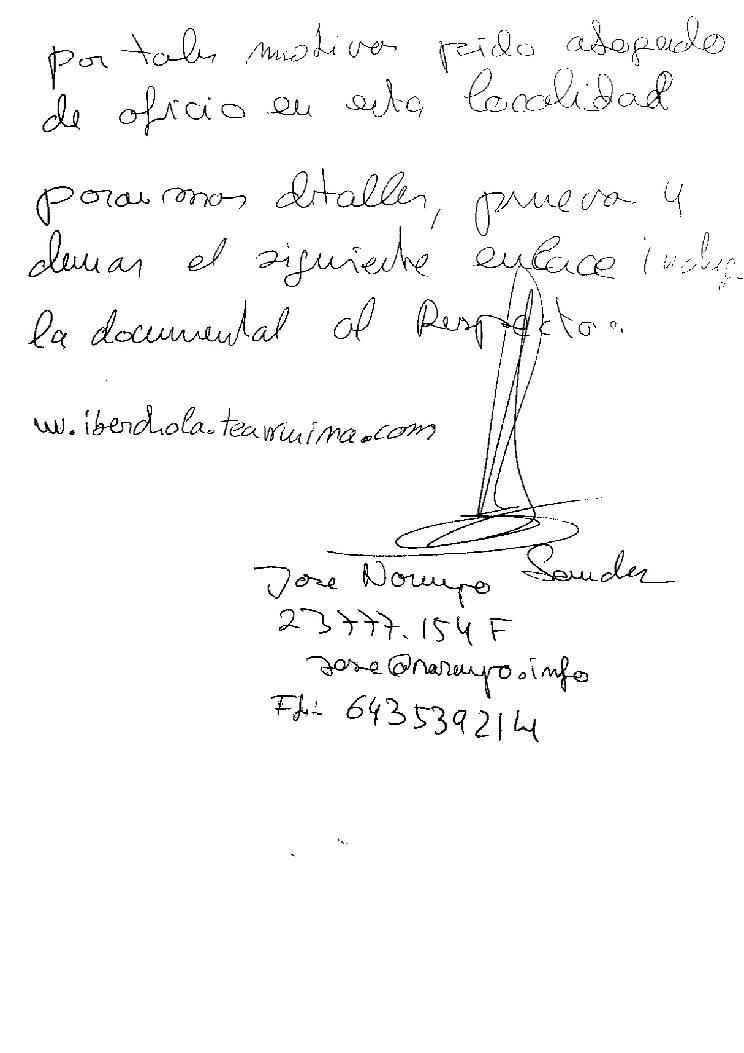 por tales motivos pido abogado
de oficio en esta localidad
para mas detalles, prueva y
demas el siguiente enlace
la documental al Respecto..
w.iberdrola.tearruina.com
Jose Naranjo Sanchez
23777.154 F
jose@naranjo.info
643539214